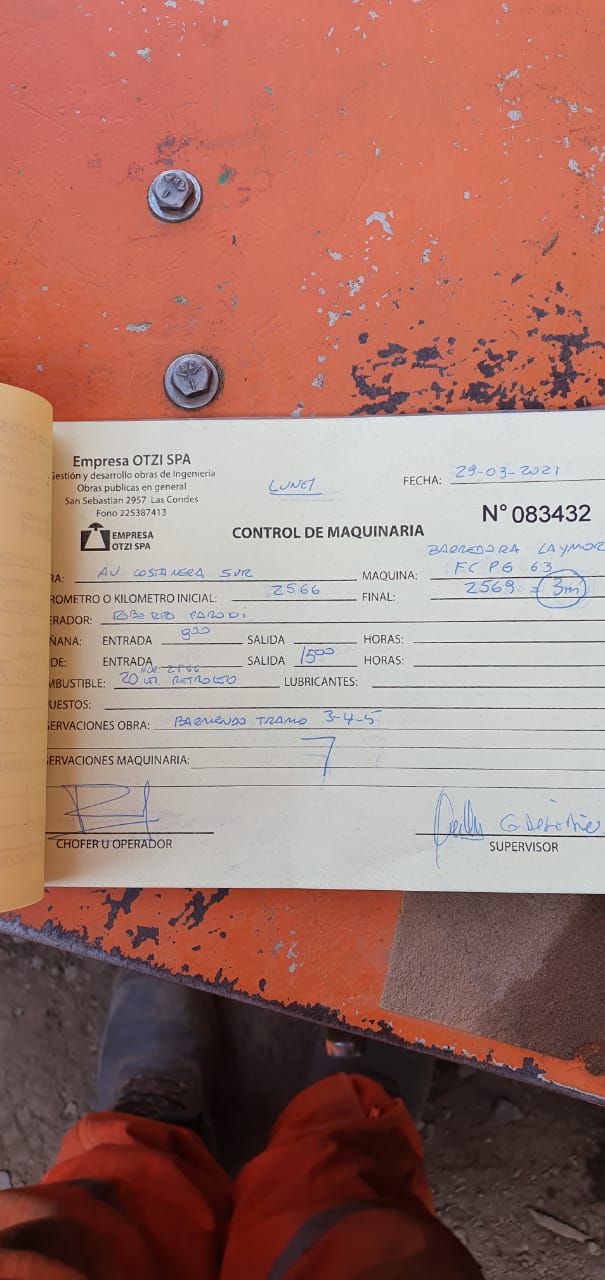 Empresa OTZI SPA
Gestión y desarrollo obras de Ingeniería
Obras publicas en general
San Sebastian 2957 Las Condes
Fono 225387413
EMPRESA
OTZI SPA
LUNES
FECHA: 29-03-2021
N° 083432
CONTROL DE MAQUINARIA
BARREDORA LAYMOR
RA: AV COSTANERA SUR MAQUINA: FC PG 63
ROMETRO O KILOMETRO INICIAL: 2566 FINAL: 2569 = 3
ERADOR: ROBERTO PARODI
ÑANA: ENTRADA 800 SALIDA HORAS:
DE: ENTRADA SALIDA 1500 HORAS:
2566
MBUSTIBLE: 20 PETROLEO LUBRICANTES:
UESTOS:
SERVACIONES OBRA: BARRIENDO TRAMO 3-4-5
SERVACIONES MAQUINARIA:
CHOFER U OPERADOR
SUPERVISOR